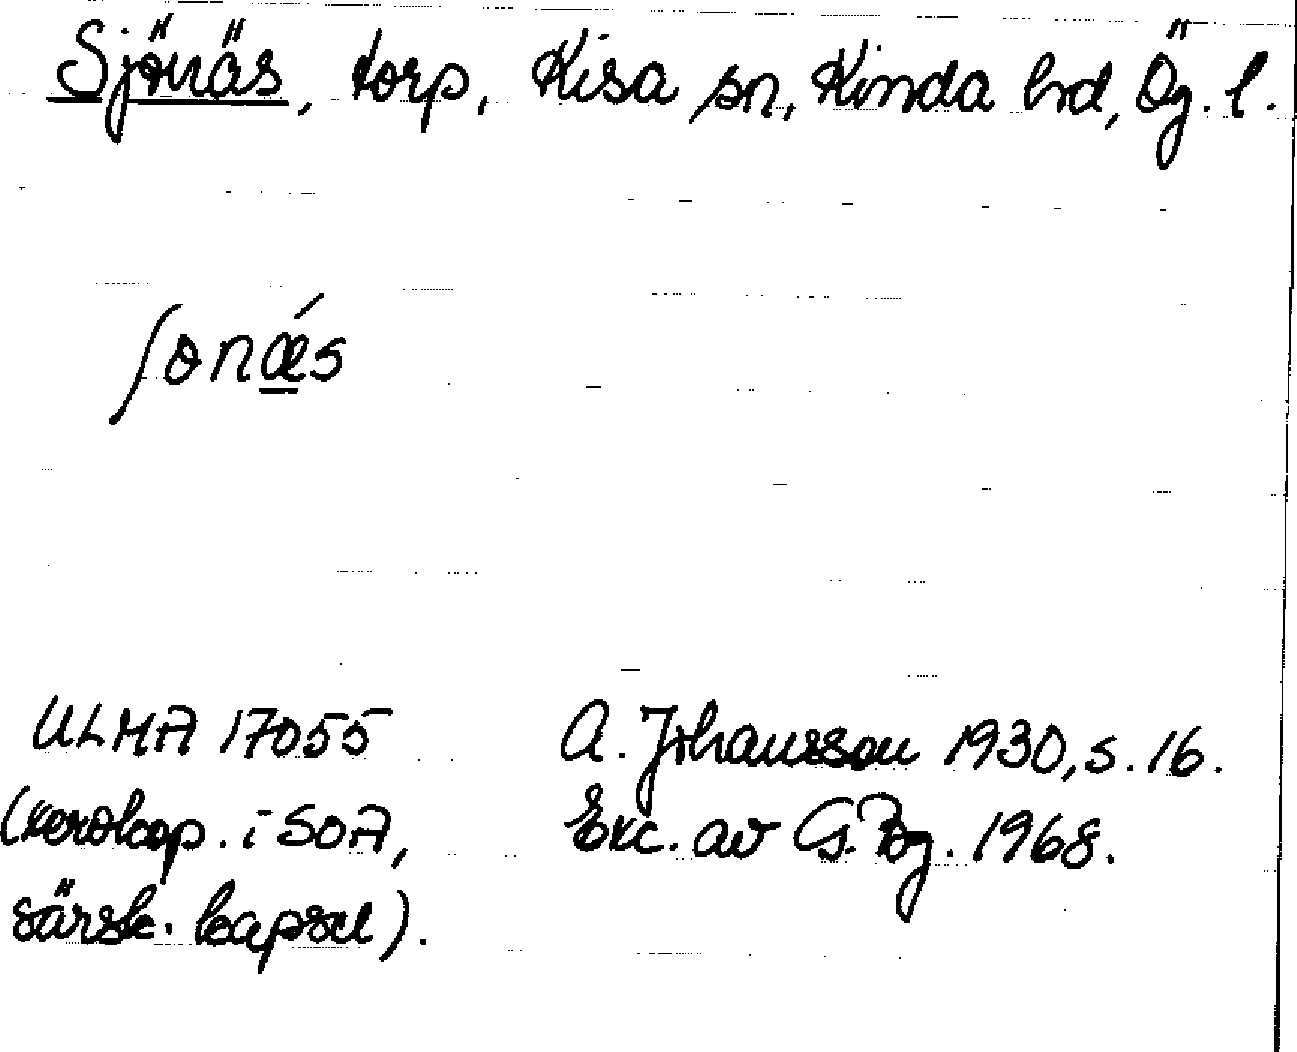 Sjönäs, torp, Kisa sn, Kinda hrd, Ög. l.
ʃonǽ̲s
ULMA 17055 A. Johansson 1930, s. 16.
(xerokop. i SOA, Exc. av G. Bg. 1968.
särsk. kapsel).